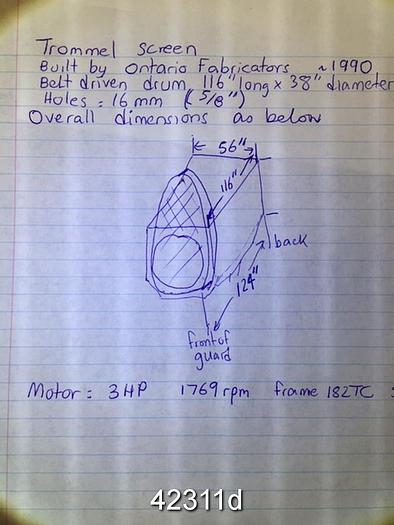 Trommel screen
Built by Ontario Fabricators ~1990
Belt driven drum 116" long x 38" diameter
Holes = 16 mm (5/8")
Overall dimensions as below
56"
116"
back
124"
front of
guard
Motor: 3HP 1769 rpm frame 182TC
42311d